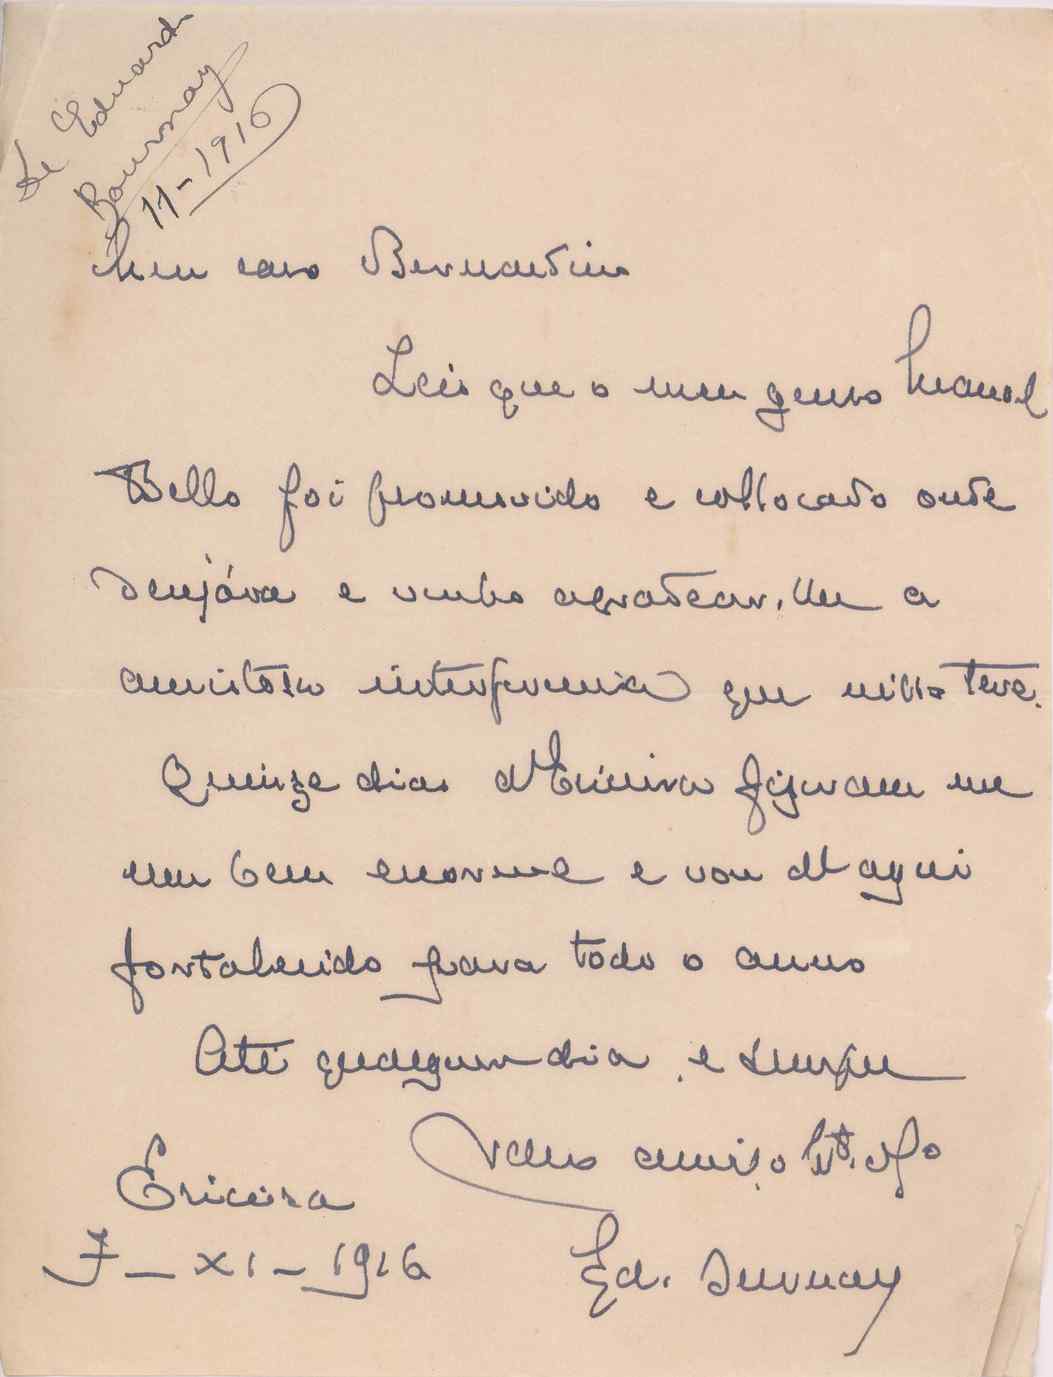 de Eduardo
Bournay
11-1916
Meu caro Bernardino
Leio que o meu genro Manoel
Bello foi promovido e collocado onde
desejáva e venho agradecer-lhe a
amistosa interferencia que nisso teve.
Quinze dias d'Ericeira fizeram me
um bem enorme e vou d'aqui
fortalecido para todo o anno
Até qualquer dia e sempre
amigo mto. dº
Ericeira
7-XI-1916
Ed. Burnay